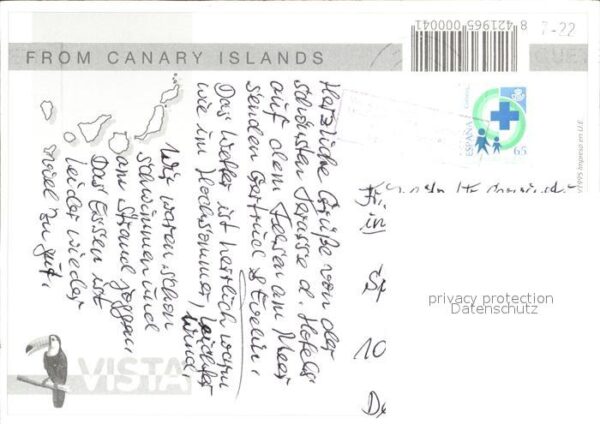 FROM CANARY ISLANDS
8 421965 000041
7-22
Herzliche Grüße von der
schönsten Terasse d. Hotels
auf dem Felsen am Meer
senden Gertrud & Evelin.
Das Wetter ist herrlich warm
wie im Hochsommer, leichter
Wind.
Wir waren schon
schwimmen und
am Strand joggen.
Das Essen ist
leider wieder
viel zu gut.
ESPAÑA
65
Correos
in
10
privacy protection
Datenschutz
VISTA